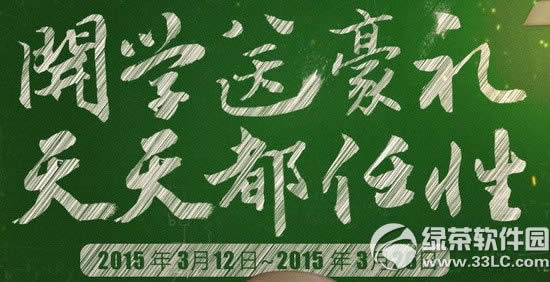 開学送豪礼
天天都任性
2015 年 3月12日~2015 年 3月
绿茶软件园
www.33LC.com